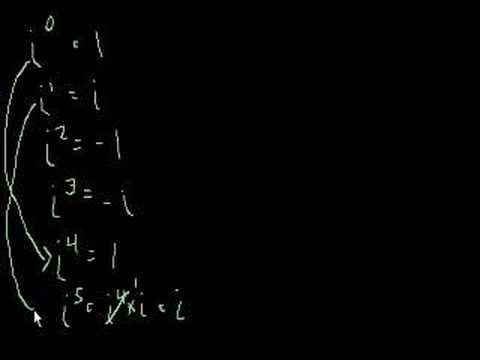 i⁰ = 1
i¹ = i
i² = -1
i³ = -i
i⁴ = 1
i⁵ = i⁴×¹i = i